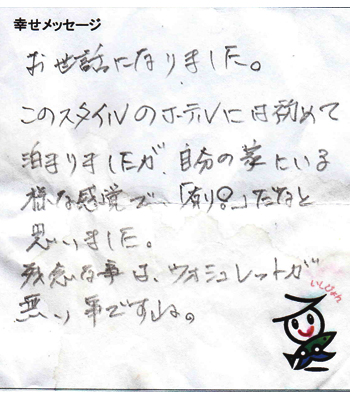 幸せメッセージ
お世話になりました。
このスタイルのホテルには初めて
泊まりましたが、自分の家にいる
様な感覚で「有り!」だなと
思いました。
残念な事は、ウォシュレットが
無い事ですね。